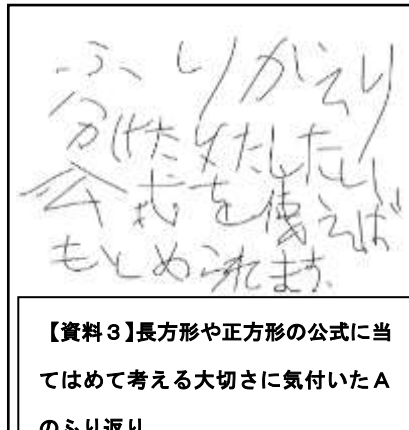 ふりかえり
分けたりたしたりし
公式を使えば
もとめられます。
【資料３】長方形や正方形の公式に当
てはめて考える大切さに気付いたＡ
のふり返り